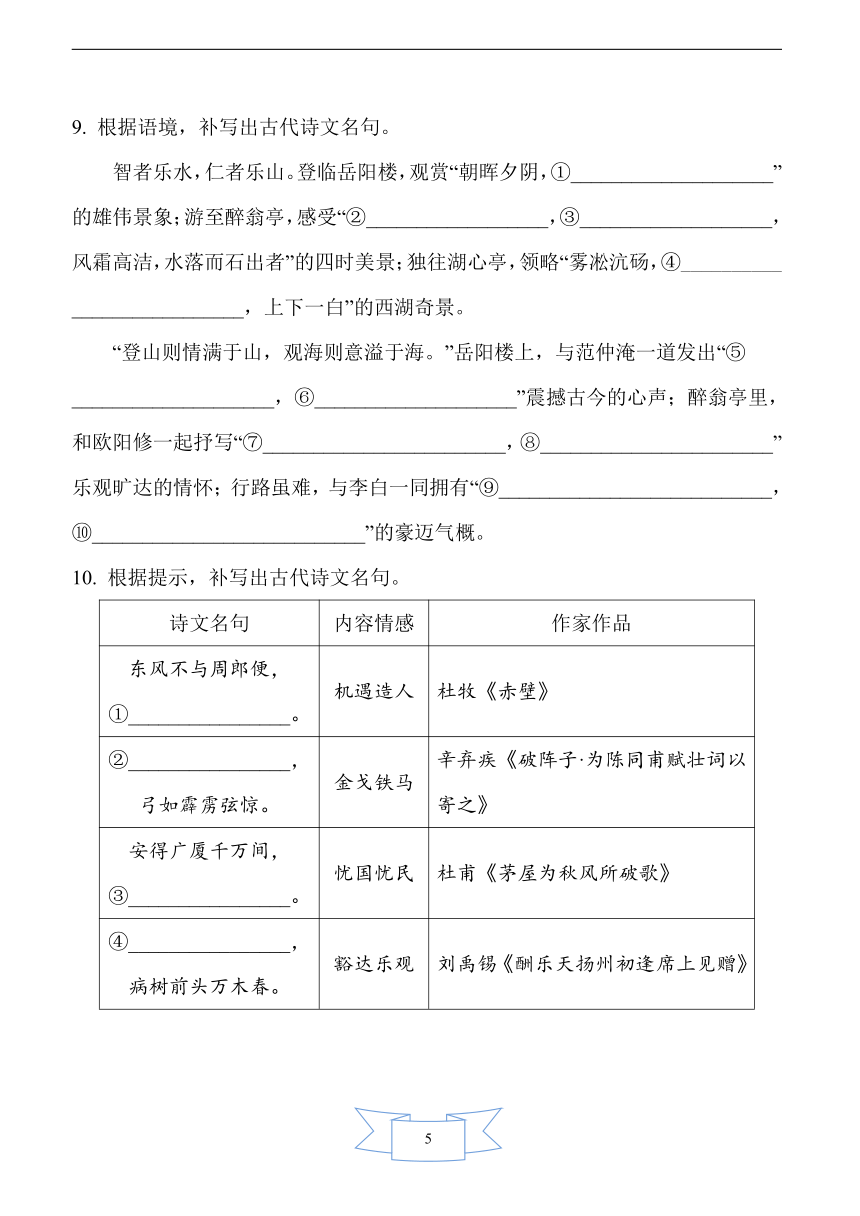 9. 根据语境，补写出古代诗文名句。
智者乐水，仁者乐山。登临岳阳楼，观赏“朝晖夕阴，①____________________”
的雄伟景象；游至醉翁亭，感受“②__________________，③___________________，
风霜高洁，水落而石出者”的四时美景；独往湖心亭，领略“雾凇沆砀，④__________
_________________，上下一白”的西湖奇景。
“登山则情满于山，观海则意溢于海。”岳阳楼上，与范仲淹一道发出“⑤
____________________，⑥____________________”震撼古今的心声；醉翁亭里，
和欧阳修一起抒写“⑦________________________，⑧_______________________”
乐观旷达的情怀；行路虽难，与李白一同拥有“⑨___________________________，
⑩___________________________”的豪迈气概。
10. 根据提示，补写出古代诗文名句。
诗文名句 内容情感 作家作品
东风不与周郎便，
①________________。
机遇造人 杜牧《赤壁》
②________________，
弓如霹雳弦惊。
金戈铁马
辛弃疾《破阵子·为陈同甫赋壮词以
寄之》
安得广厦千万间，
③________________。
忧国忧民 杜甫《茅屋为秋风所破歌》
④________________，
病树前头万木春。
豁达乐观 刘禹锡《酬乐天扬州初逢席上见赠》
5